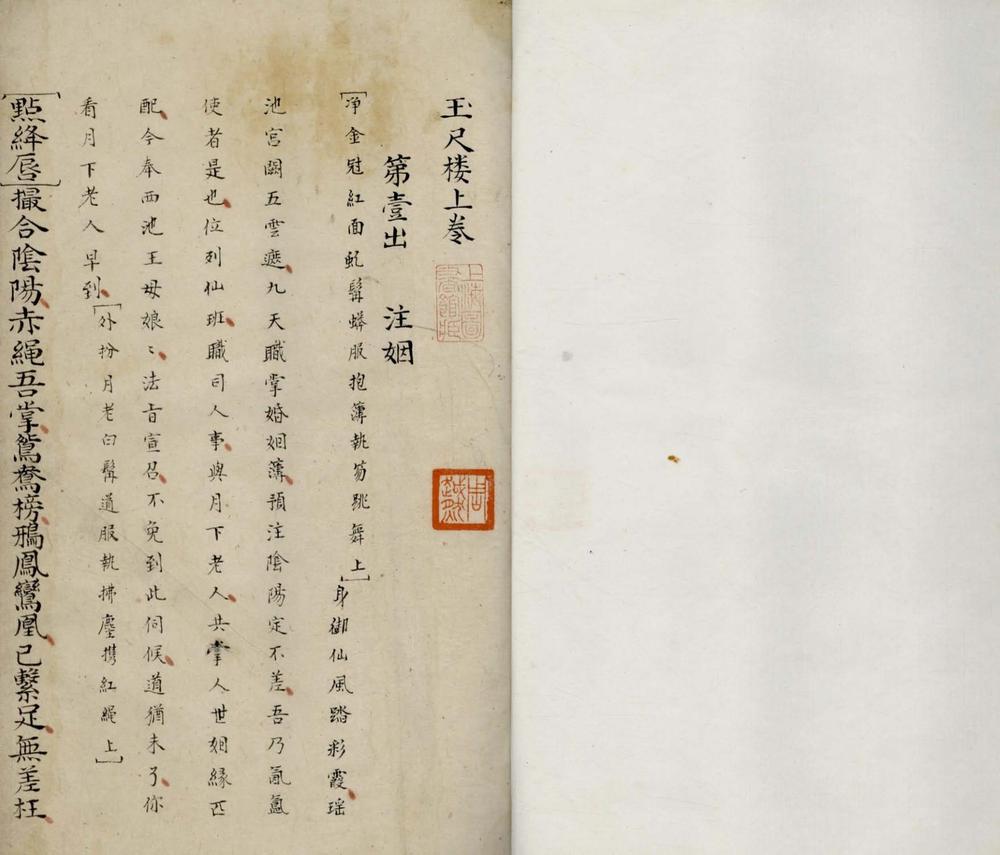 玉尺楼上卷
第壹出 注姻
[净金冠紅面虬髯蟒服抱簿執笏跳舞上]身御仙風踏彩霞瑶
池宫闕五雲遮九天職掌婚姻簿預注陰陽定不差吾乃氤氲
使者是也位列仙班職司人事與月下老人共掌人世姻緣匹
配今奉西池王母娘〻法旨宣召不免到此伺候道猶未了你
看月下老人早到[外扮月老白髯道服執拂塵携紅繩上]
[點絳唇]撮合陰陽赤繩吾掌鴛鴦榜鴉鳳鸞凰已繫足無差枉
上海圖書館藏
周越然